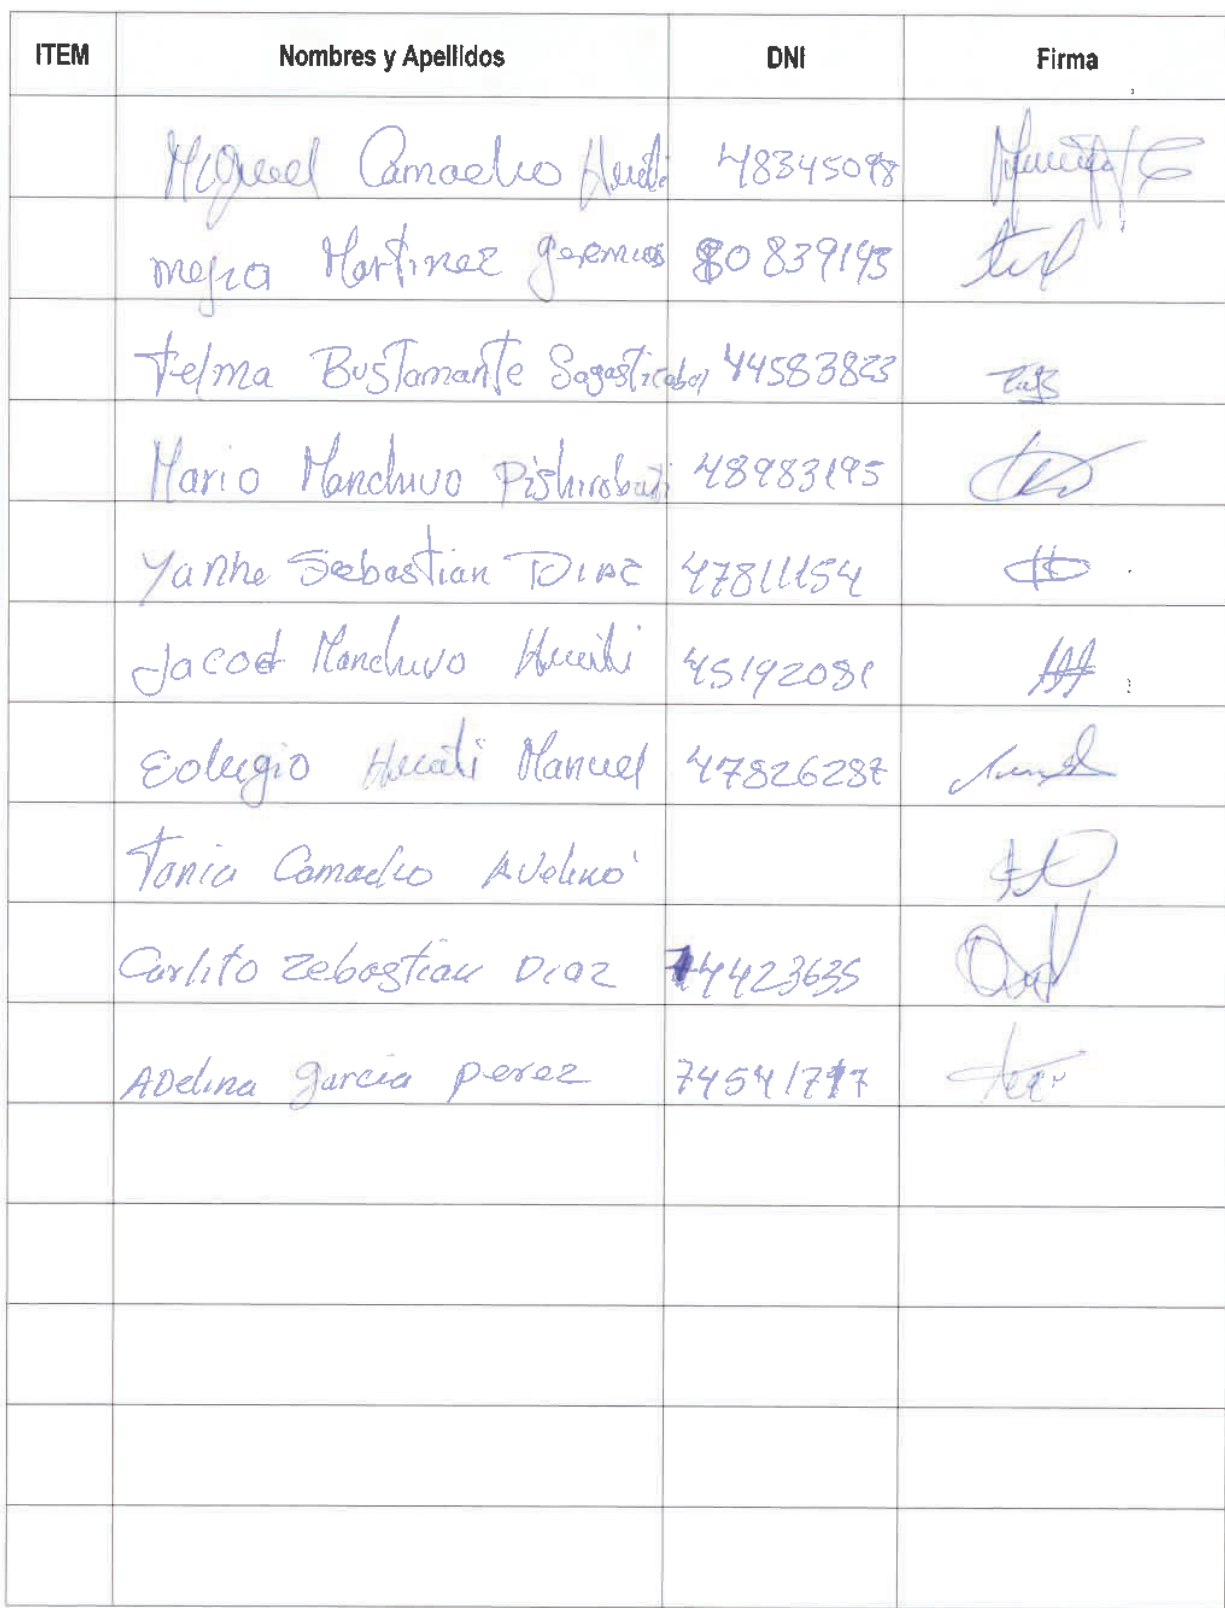 ITEM Nombres y Apellidos DNI Firma
Miguel Camacho 48345098
Mejia Martinez geremias 80839145
Telma Bustamante Sagasticabal 44583823
Mario Manchuvo 48983195
Yanhe Sebastian DIAZ 47811154
Jacod Manchuvo Hueiti 45192081
Eolugio Manuel 47826287
Tania Camacho Avelino
Carlito Zebastian Diaz 74423635
ADelina garcia perez 74541717